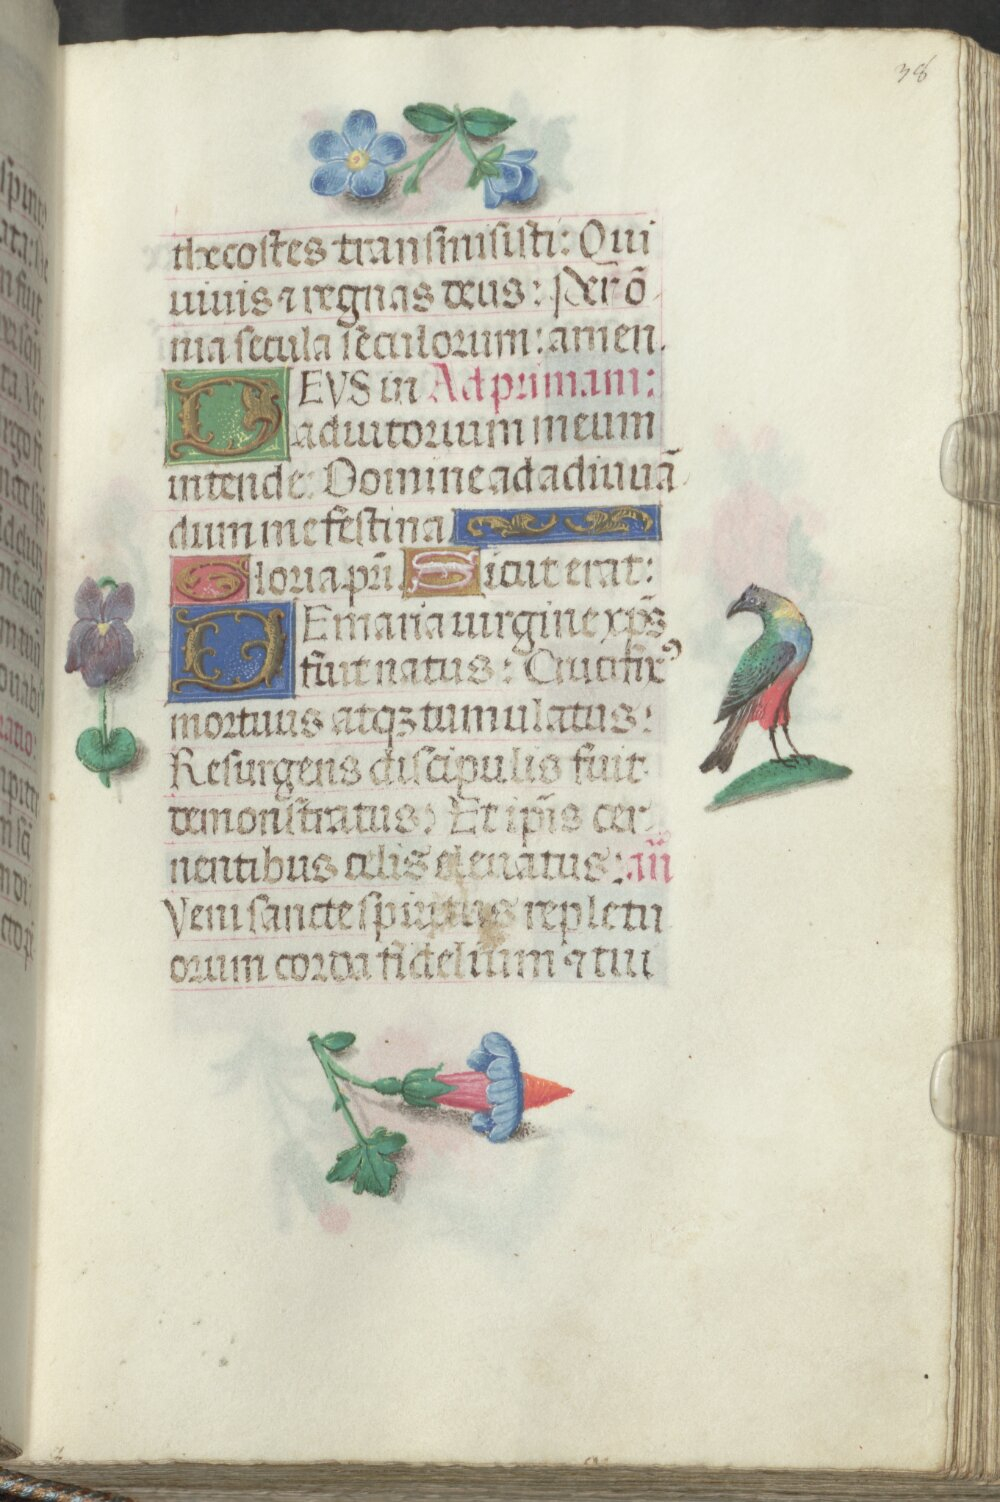 38
thecostes transmisisti: Qui
uiuis ⁊ regnas deus: Per õ
nia secula sęculorum: amen.
DEVS in Ad primam:
adiutorium meum
intende: Domine ad adiuuā
dum me festina
Gloria pr̄i Sicut erat:
DE maria uirgine xp̄s
fuit natus: Crucifixꝰ
mortuus atqꝫ tumulatus:
Resurgens discipulis fuit
demonstratus: Et ip̄is cer
nentibus celis eleuatus: an̄
Veni sancte spiritus repletu
orum corda fidelium ⁊ tui